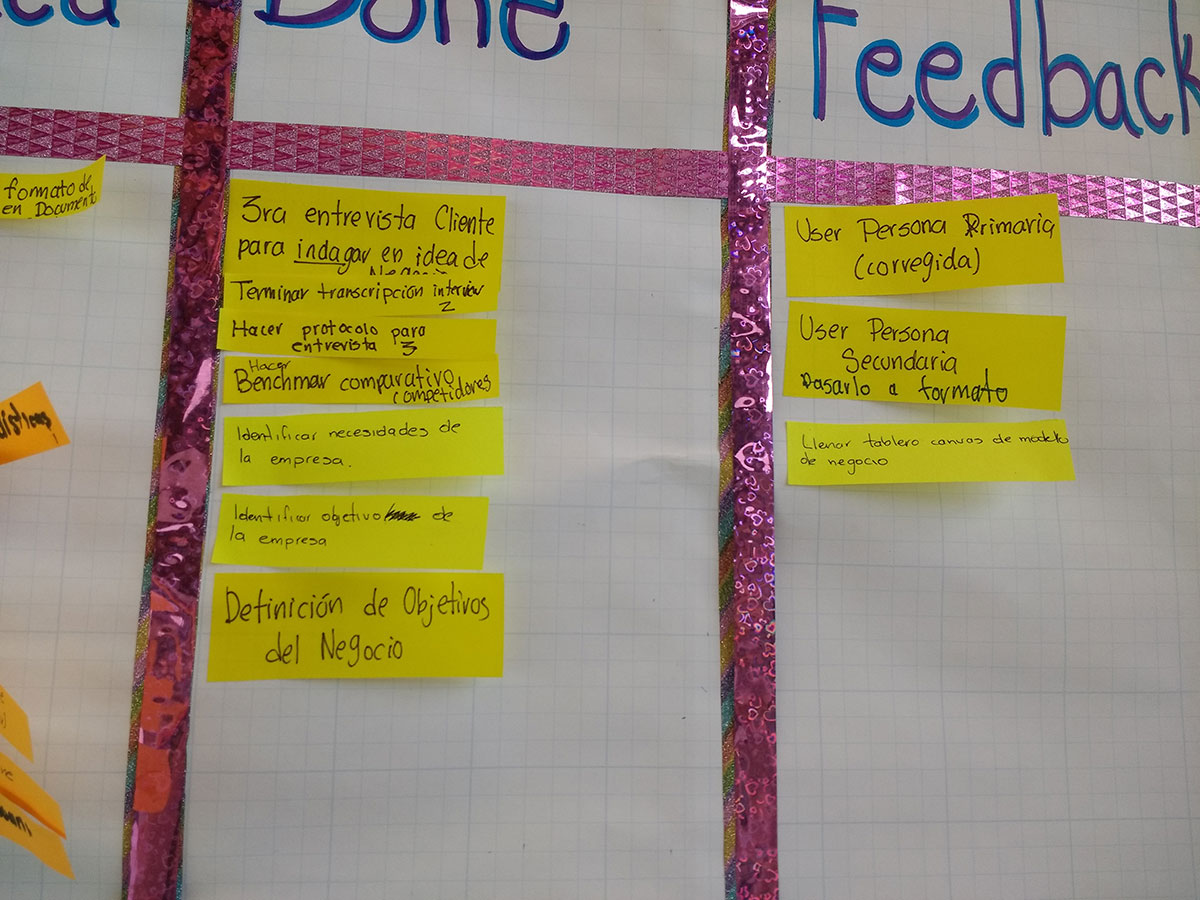 Done
Feedback
formato de
en Documento
3ra entrevista Cliente
para indagar en idea de
Negocio
Terminar transcripción interview
2
Hacer protocolo para
entrevista 3
Hacer
Benchmar comparativo
competidores
Identificar necesidades de
la empresa.
Identificar objetivo de
la empresa
Definición de Objetivos
del Negocio
User Persona Primaria
(corregida)
User Persona
Secundaria
Pasarlo a formato
Llenar tablero canvas de modelo
de negocio